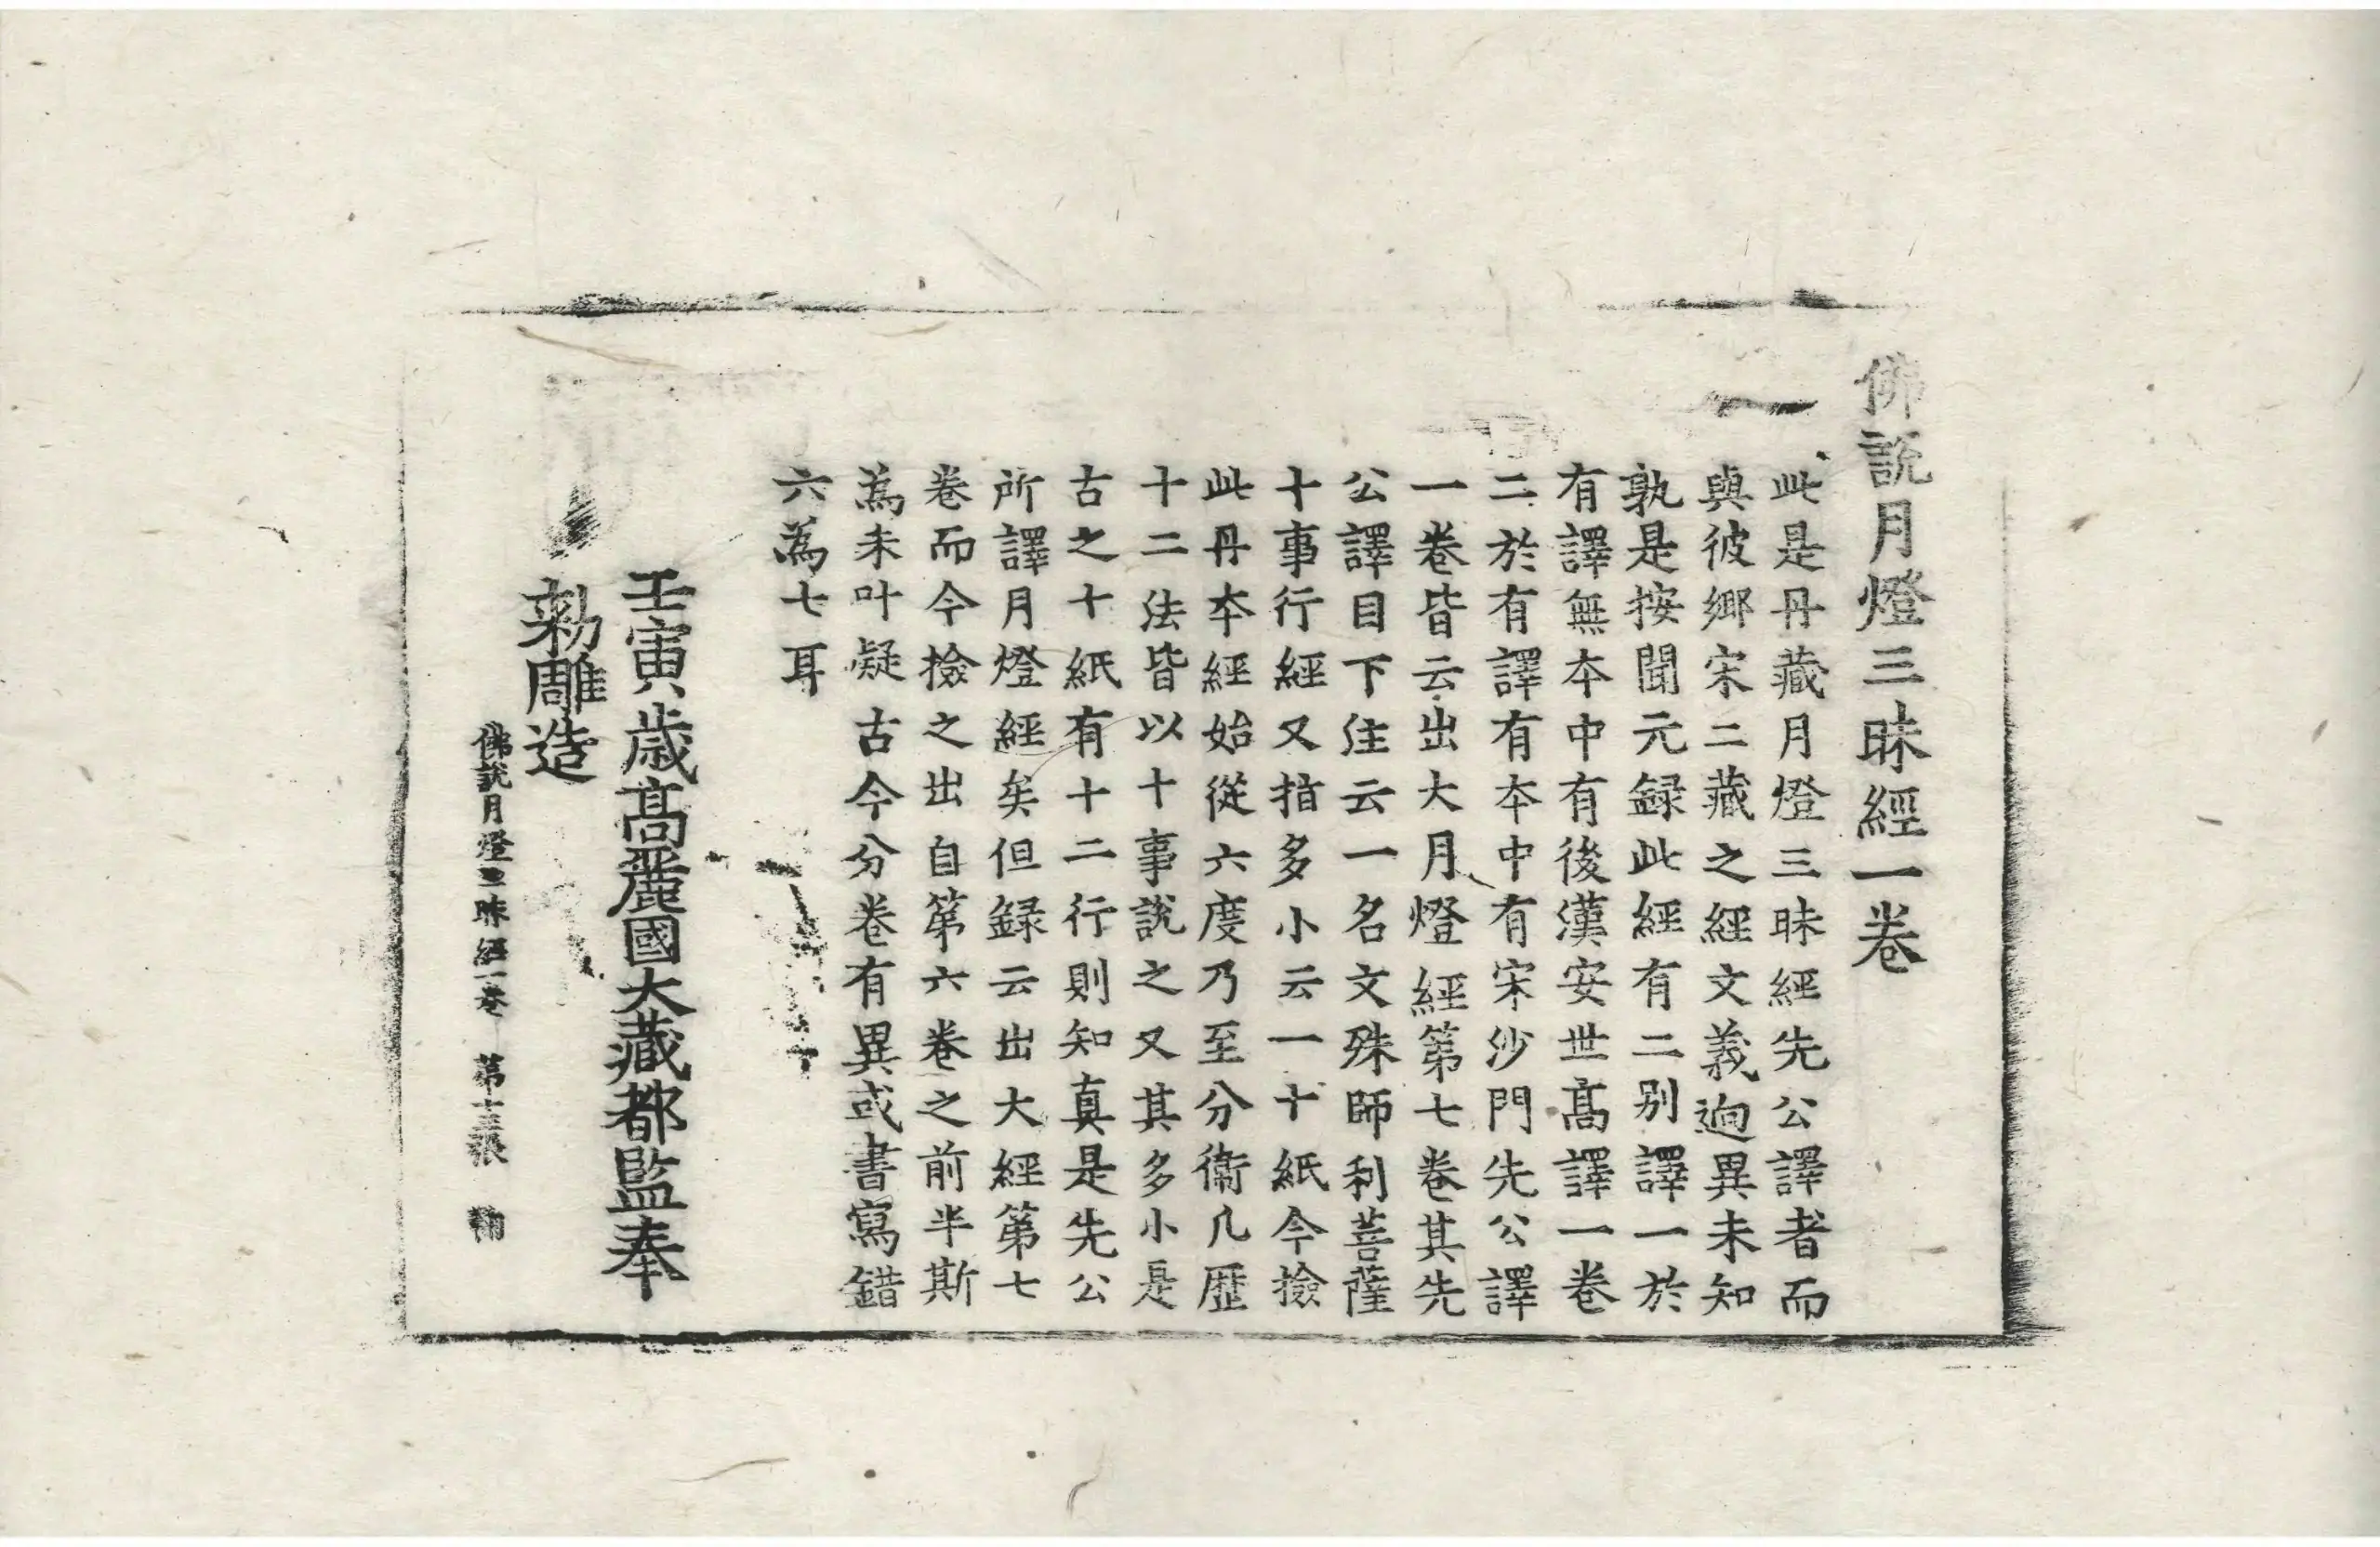 佛說月燈三昧經一卷
此是丹藏月燈三昧經先公譯者而
與彼鄉宋二藏之經文義逈異未知
孰是按開元録此經有二別譯一於
有譯無夲中有後漢安世髙譯一卷
二於有譯有夲中有宋沙門先公譯
一卷皆云出大月燈經第七卷其先
公譯目下注云一名文殊師利菩薩
十事行經又指多小云一十紙今撿
此丹夲經始從六度乃至分衛凡歷
十二法皆以十事說之又其多小是
古之十紙有十二行則知真是先公
所譯月燈經矣但録云出大經第七
卷而今撿之出自第六卷之前半斯
為未叶疑古今分卷有異或書寫錯
六為七耳
壬寅歲髙麗國大藏都監奉
勑雕造
佛說月燈三昧經一卷 第十三張